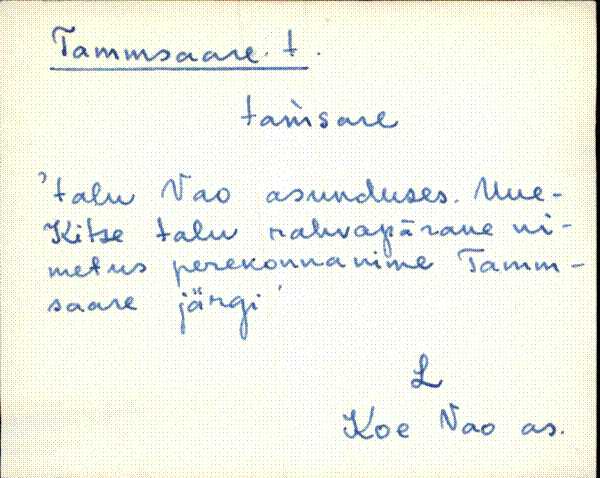 Tammsaare t.
tam̀sare
'talu Vao asunduses. Uue-
Kitse talu rahvapärane ni-
metus perekonnanime Tamm-
saare järgi'
L
Koe Vao as.